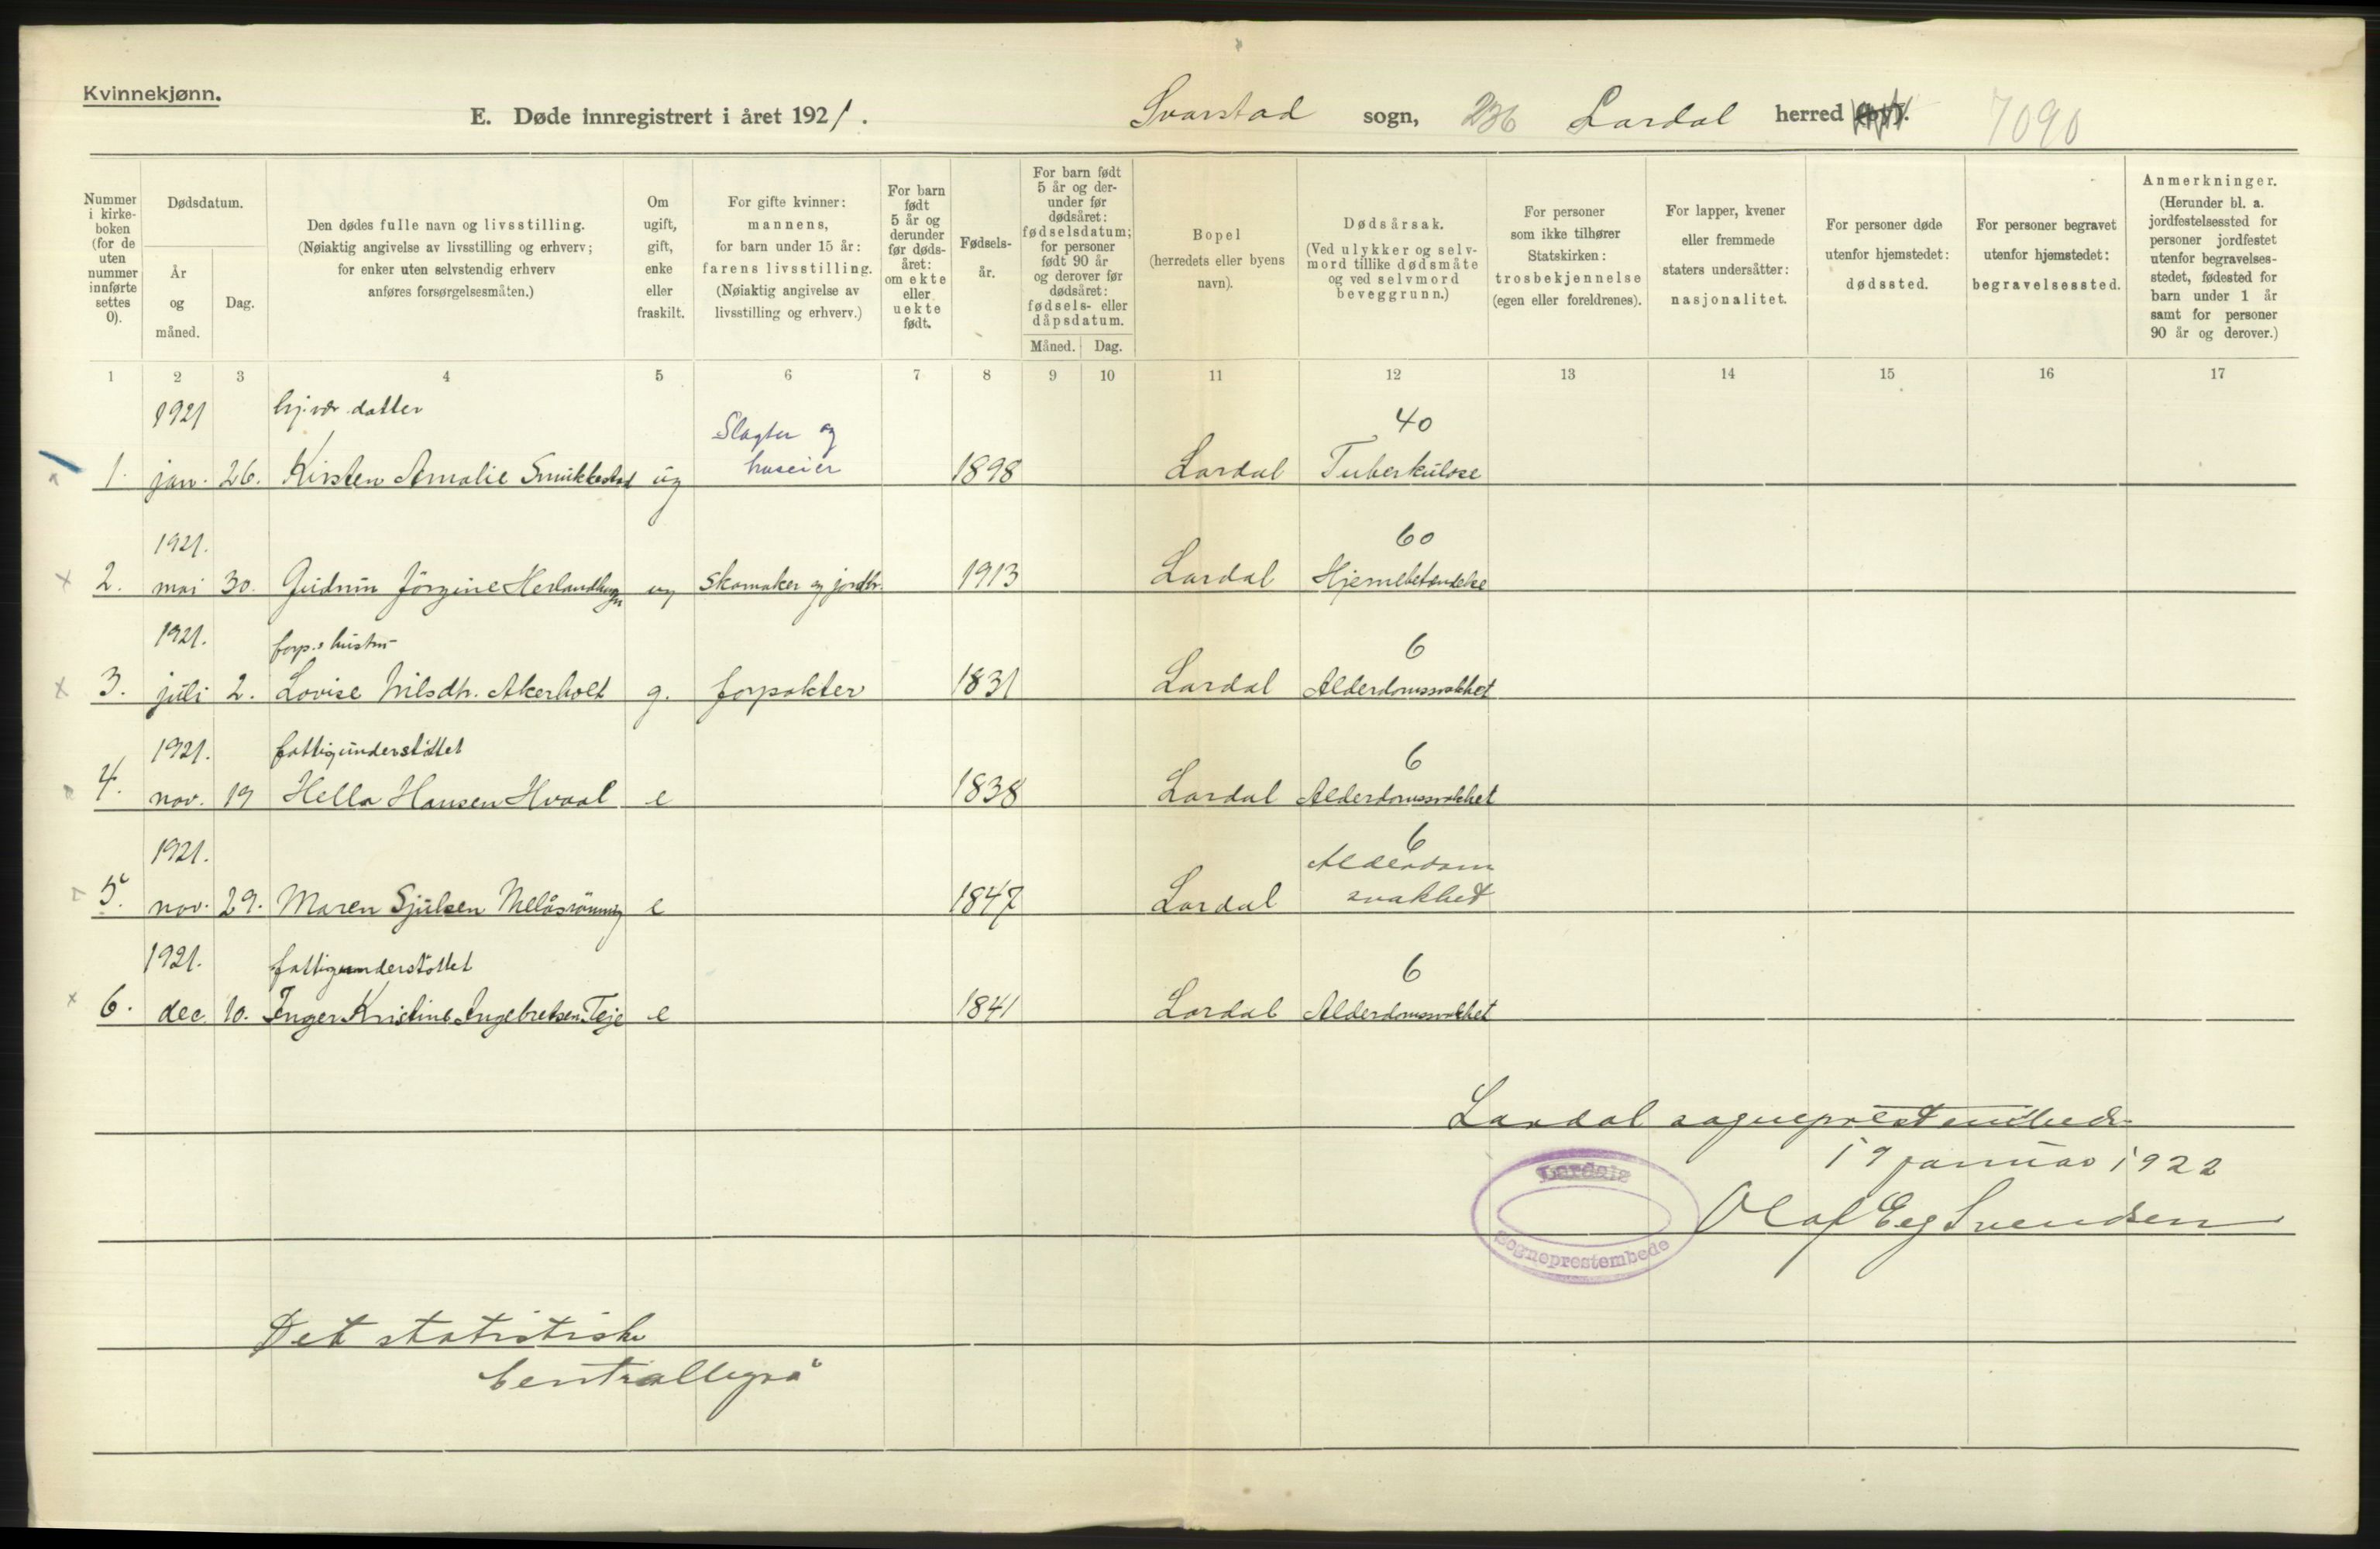 Kvinnekjønn.
E. Døde innregistrert i året 1921.
Svarstad sogn, 236 Lardal herred (by). 7090
Nummer i kirkeboken (for de uten nummer innførte settes 0).
Dødsdatum.
År og måned.
Dag.
Den dødes fulle navn og livsstilling.
(Nøiaktig angivelse av livsstilling og erhverv;
for enker uten selvstendig erhverv
anføres forsørgelsesmåten.)
Om ugift, gift, enke eller fraskilt.
For gifte kvinner: mannens, for barn under 15 år: farens livsstilling. (Nøiaktig angivelse av livsstilling og erhverv.)
For barn født 5 år og derunder før dødsåret: om ekte eller uekte født.
Fødselsår.
For barn født 5 år og derunder før dødsåret: fødselsdatum; for personer født 90 år og derover før dødsåret: fødsels- eller dåpsdatum.
Måned. Dag.
Bopel (herredets eller byens navn).
Dødsårsak. (Ved ulykker og selvmord tillike dødsmåte og ved selvmord beveggrunn.)
For personer som ikke tilhører Statskirken: trosbekjennelse (egen eller foreldrenes).
For lapper, kvener eller fremmede staters undersåtter: nasjonalitet.
For personer døde utenfor hjemstedet: dødssted.
For personer begravet utenfor hjemstedet: begravelsessted.
Anmerkninger. (Herunder bl. a. jordfestelsessted for personer jordfestet utenfor begravelsesstedet, fødested for barn under 1 år samt for personer 90 år og derover.)
1 2 3 4 5 6 7 8 9 10 11 12 13 14 15 16 17
1921 hj.vær. datter Slagter og 40
1. jan. 26. Kirsten Amalie Smukkestad ug huseier 1898 Lardal Tuberkulose
1921. 60
2. mai 30. Gudrun Jörgine Herlandhagen ug Skomaker og jordbr. 1913 Lardal Hjernebetendelse
1921. forp.s hustru 6
3. juli 2. Lovise Nilsdtr. Akerholt g. forpakter 1831 Lardal Alderdomssvakhet
1921. fattigunderstöttet 6
4. nov. 19 Hella Hansen Hvaal e 1838 Lardal Alderdomssvakhet
1921. 6 Alderdom
5. nov. 29. Maren Sjulsen Melåsrönning e 1847 Lardal svakhet
1921. fattigunderstöttet 6
6. dec. 10. Inger Kristine Engebretsen Teje e 1841 Lardal Alderdomssvakhet
Lardal sogneprestembede
19 januar 1922
Olaf Eeg Svendsen
Lardals
Sogneprestembede
Det statistiske
Centralbyrå